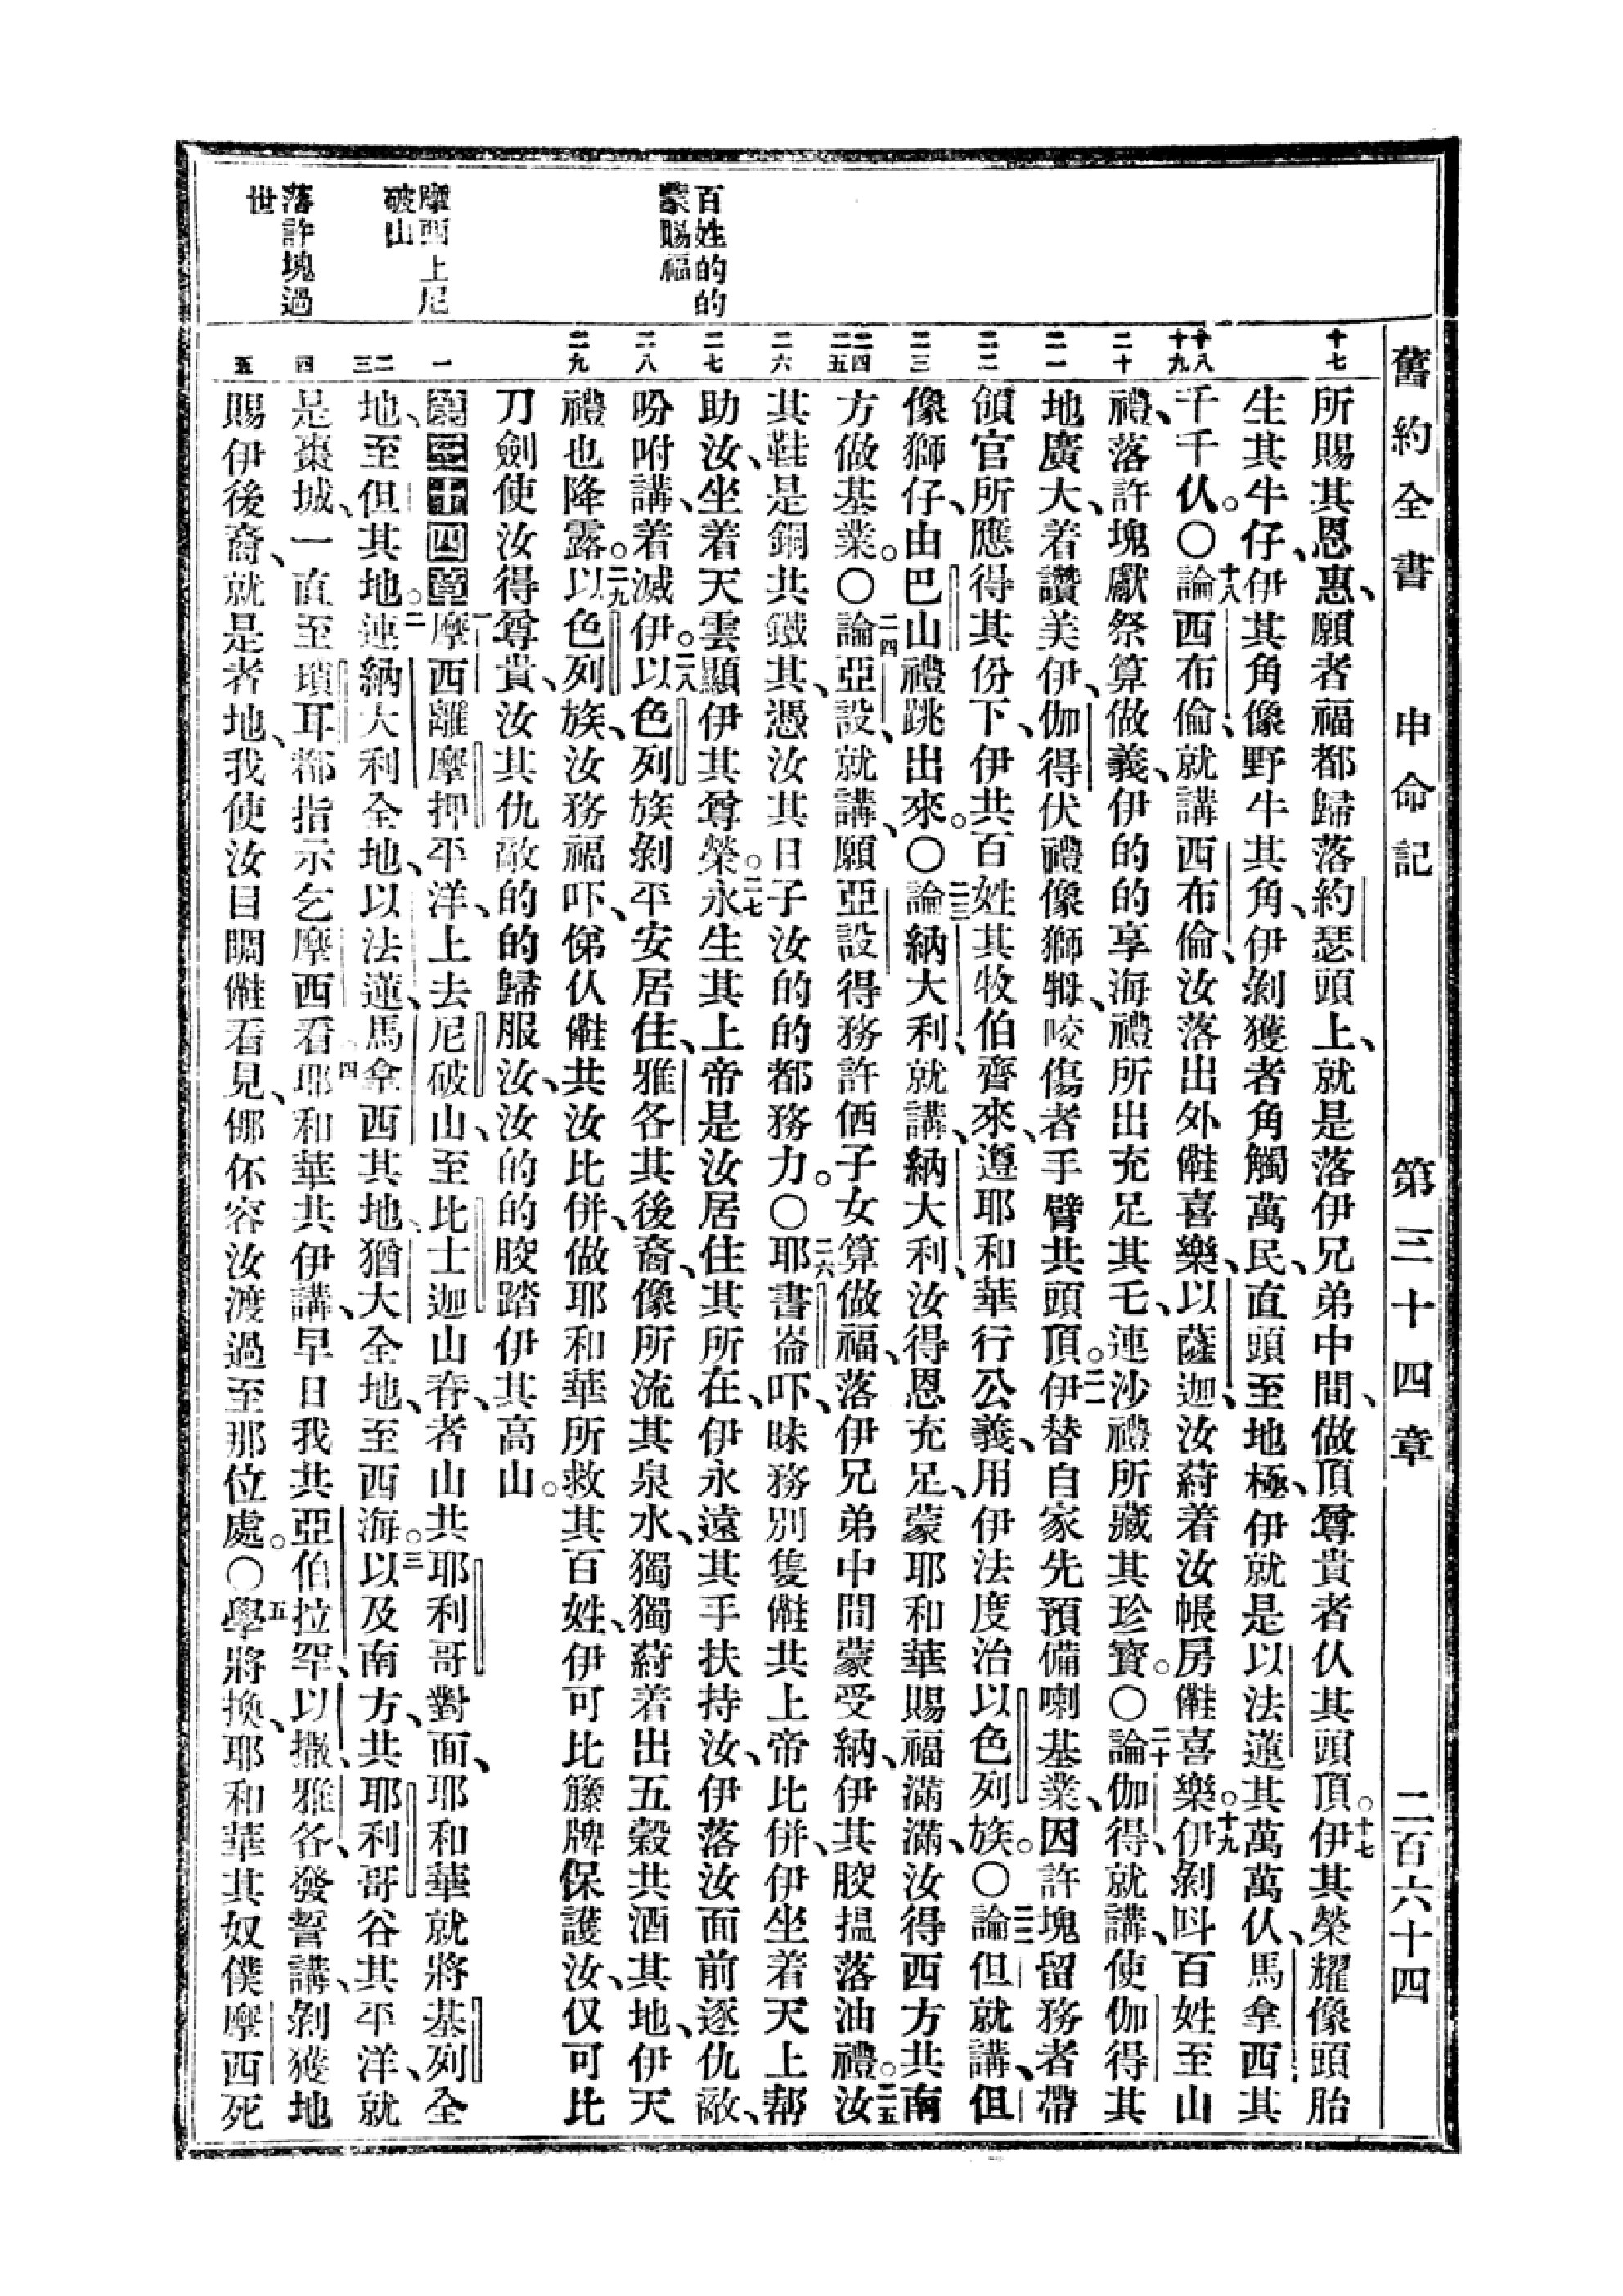 舊約全書　申命記　第三十四章　二百六十四
百姓的的
蒙賜福
摩西上尼
破山
落許塊過
世
十七
十八
十九
二十
二一
二二
二三
二四
二五
二六
二七
二八
二九
一
二
三
四
五
所賜其恩惠、願者福都歸落約瑟頭上、就是落伊兄弟中間、做頂尊貴者仈其頭頂。十七伊其榮耀像頭胎
生其牛仔、伊其角像野牛其角、伊剝獲者角觸萬民、直頭至地極、伊就是以法蓮其萬萬仈、馬拿西其
千千仈。〇十八論西布倫、就講西布倫、汝落出外儺喜樂、以薩迦、汝蒔着汝帳房儺喜樂。十九伊剝呌百姓至山
禮、落許塊獻祭算做義、伊的的享海禮所出充足其毛、連沙禮所藏其珍寶。〇二十論伽得、就講、使伽得其
地廣大、着讚美伊、伽得伏禮像獅𤘅、咬傷者手臂共頭頂。二一伊替自家先預備喇基業、因許塊留務者帶
領官所應得其份下、伊共百姓其牧伯齊來、遵耶和華行公義、用伊法度治以色列族。〇二二論但就講、但
像獅仔、由巴山禮跳出來。〇二三論納大利、就講、納大利、汝得恩充足、蒙耶和華賜福滿滿、汝得西方共南
方做基業。〇二四論亞設、就講、願亞設得務許価子女算做福、落伊兄弟中間蒙受納、伊其骹搵落油禮。二五汝
其鞋是銅共鐵其、憑汝其日子汝的的都務力。〇二六耶書崙吓、昧務別隻儺共上帝比併、伊坐着天上幫
助汝、坐着天雲顯伊其尊榮。二七永生其上帝是汝居住其所在、伊永遠其手扶持汝、伊落汝面前逐仇敵、
吩咐講、着滅伊。二八以色列族剝平安居住、雅各其後裔、像所流其泉水、獨獨蒔着出五穀共酒其地、伊天
禮也降露。二九以色列族、汝務福吓、俤仈儺共汝比併、做耶和華所救其百姓、伊可比籐牌保護汝、仅可比
刀劍使汝得尊貴、汝其仇敵的的歸服汝、汝的的骹踏伊其高山。
第三十四章　一摩西離摩押平洋、上去尼破山、至比士迦山脊、者山共耶利哥對面、耶和華就將基列全
地、至但其地。二連納大利全地、以法蓮、馬拿西其地、猶大全地、至西海。三以及南方、共耶利哥谷其平洋、就
是棗城、一直至瑣耳都指示乞摩西看。四耶和華共伊講、早日我共亞伯拉罕、以撒、雅各、發誓講、剝獲地
賜伊後裔、就是者地、我使汝目睭儺看見、倻伓容汝渡過至那位處。〇五學將換、耶和華其奴僕摩西死